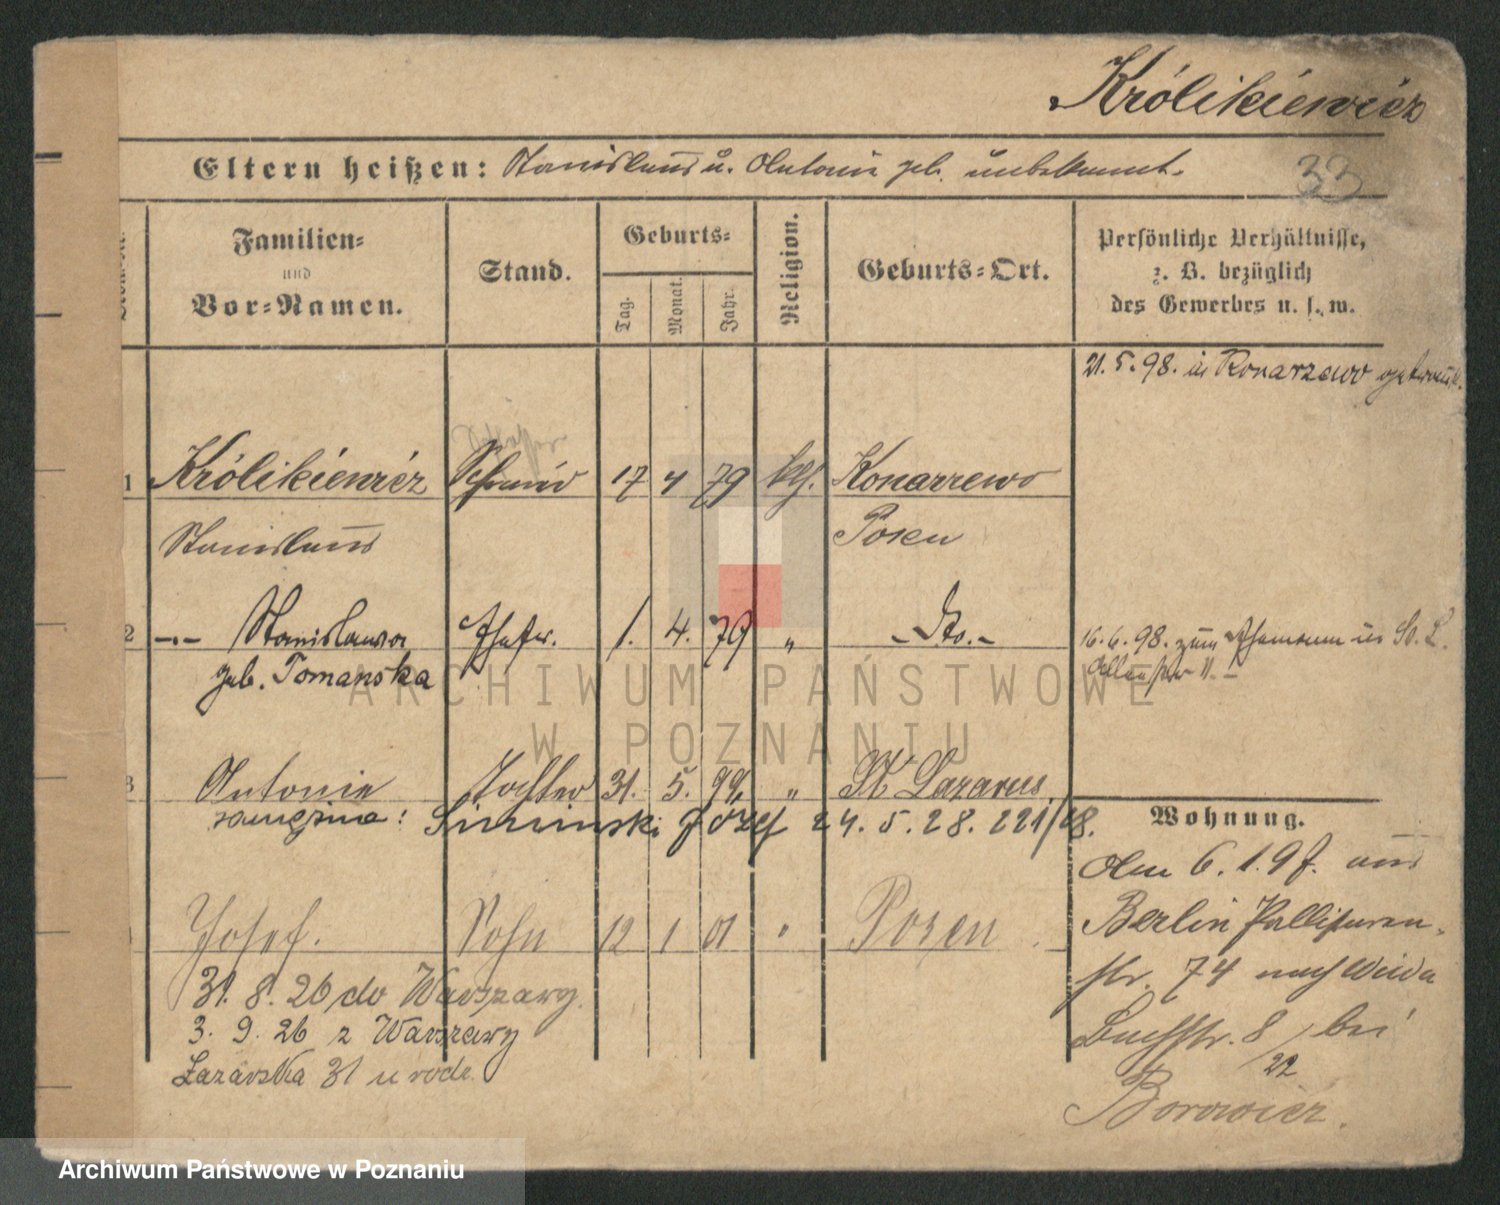 Królikiewicz
Eltern heißen: Stanislaus u. Antonie geb. unbekannt.
33
Familien-
und
Vor-Namen.
Stand.
Geburts-
Tag.
Monat.
Jahr.
Religion.
Geburts-Ort.
Persönliche Verhältnisse,
z. B. bezüglich
des Gewerbes u. s. w.
21. 5. 98. in Konarzewo getraut.
1 Królikiewicz Schmied 17 4 79 kth. Konarzewo
Stanislaus Posen
2 -"- Stanislawa Ehefr. 1. 4. 79 " - Do. -
geb. Tomanska
16. 6. 98. zum Ehemann in St. L.
3 Antonie Tochter 31. 5. 99. " St Lazarus
zamężna: Simiński Józef 24. 5. 28. 221/28.
Wohnung.
Am 6. 1. 97. aus
Berlin Pallisaden-
str. 74 nach Weida
Josef. Sohn 12 1 01 " Posen
31. 8. 26 do Warszawy.
3. 9. 26 z Warszawy
Łazarska 31 u rodz.
str. 8 bei
22
Borowicz.
ARCHIWUM PAŃSTWOWE
W POZNANIU
Archiwum Państwowe w Poznaniu